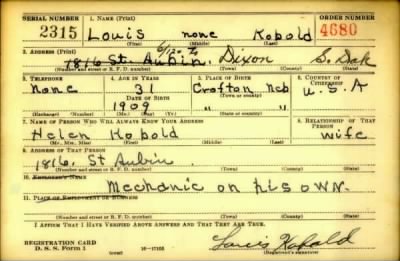 SERIAL NUMBER 1. NAME (Print) ORDER NUMBER
2315 Louis none Kobold 4680
(First) (Middle) (Last)
2. ADDRESS (Print)
1816 St. Aubin. Dixon S. Dak
(Number and street or R. F. D. number) (Town) (County) (State)
3. TELEPHONE 4. AGE IN YEARS 5. PLACE OF BIRTH 6. COUNTRY OF CITIZENSHIP
none 31 Crofton Neb U.S.A
DATE OF BIRTH (Town or county)
1909 " "
(Exchange) (Number) (Mo.) (Day) (Yr.) (State or country)
7. NAME OF PERSON WHO WILL ALWAYS KNOW YOUR ADDRESS 8. RELATIONSHIP OF THAT PERSON
Helen Kobold wife
(Mr., Mrs., Miss) (First) (Middle) (Last)
9. ADDRESS OF THAT PERSON
1816. St Aubin.
(Number and street or R. F. D. number) (Town) (County) (State)
10. EMPLOYER'S NAME
Mechanic on his own.
11. PLACE OF EMPLOYMENT OR BUSINESS
(Number and street or R. F. D. number) (Town) (County) (State)
I AFFIRM THAT I HAVE VERIFIED ABOVE ANSWERS AND THAT THEY ARE TRUE.
REGISTRATION CARD
D. S. S. Form 1 16-17105 Louis Kobold
(over) (Registrant's signature)